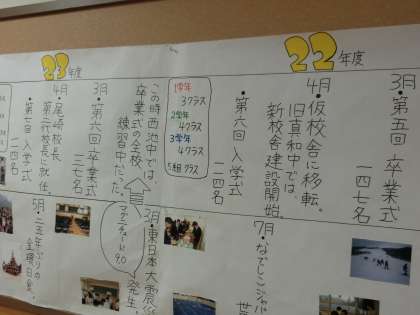 22年度
3月
・第五回 卒業式
一四七名
4月
・仮校舎に移転。
旧真和中では、
新校舎建設開始。
・第六回 入学式
一二四名
1学年
3クラス
2学年
4クラス
3学年
4クラス
5組 1クラス
7月
・なでしこジャパン
3月
・東日本大震災
発生。
マグニチュード9.0
この時西池中では、
卒業式の全校
練習中だった。
23年度
3月
・第六回 卒業式
一三七名
4月
・尾崎校長
第二代校長に就任。
・第七回 入学式
一二四名
5月
・二五年ぶりの
金環日食。